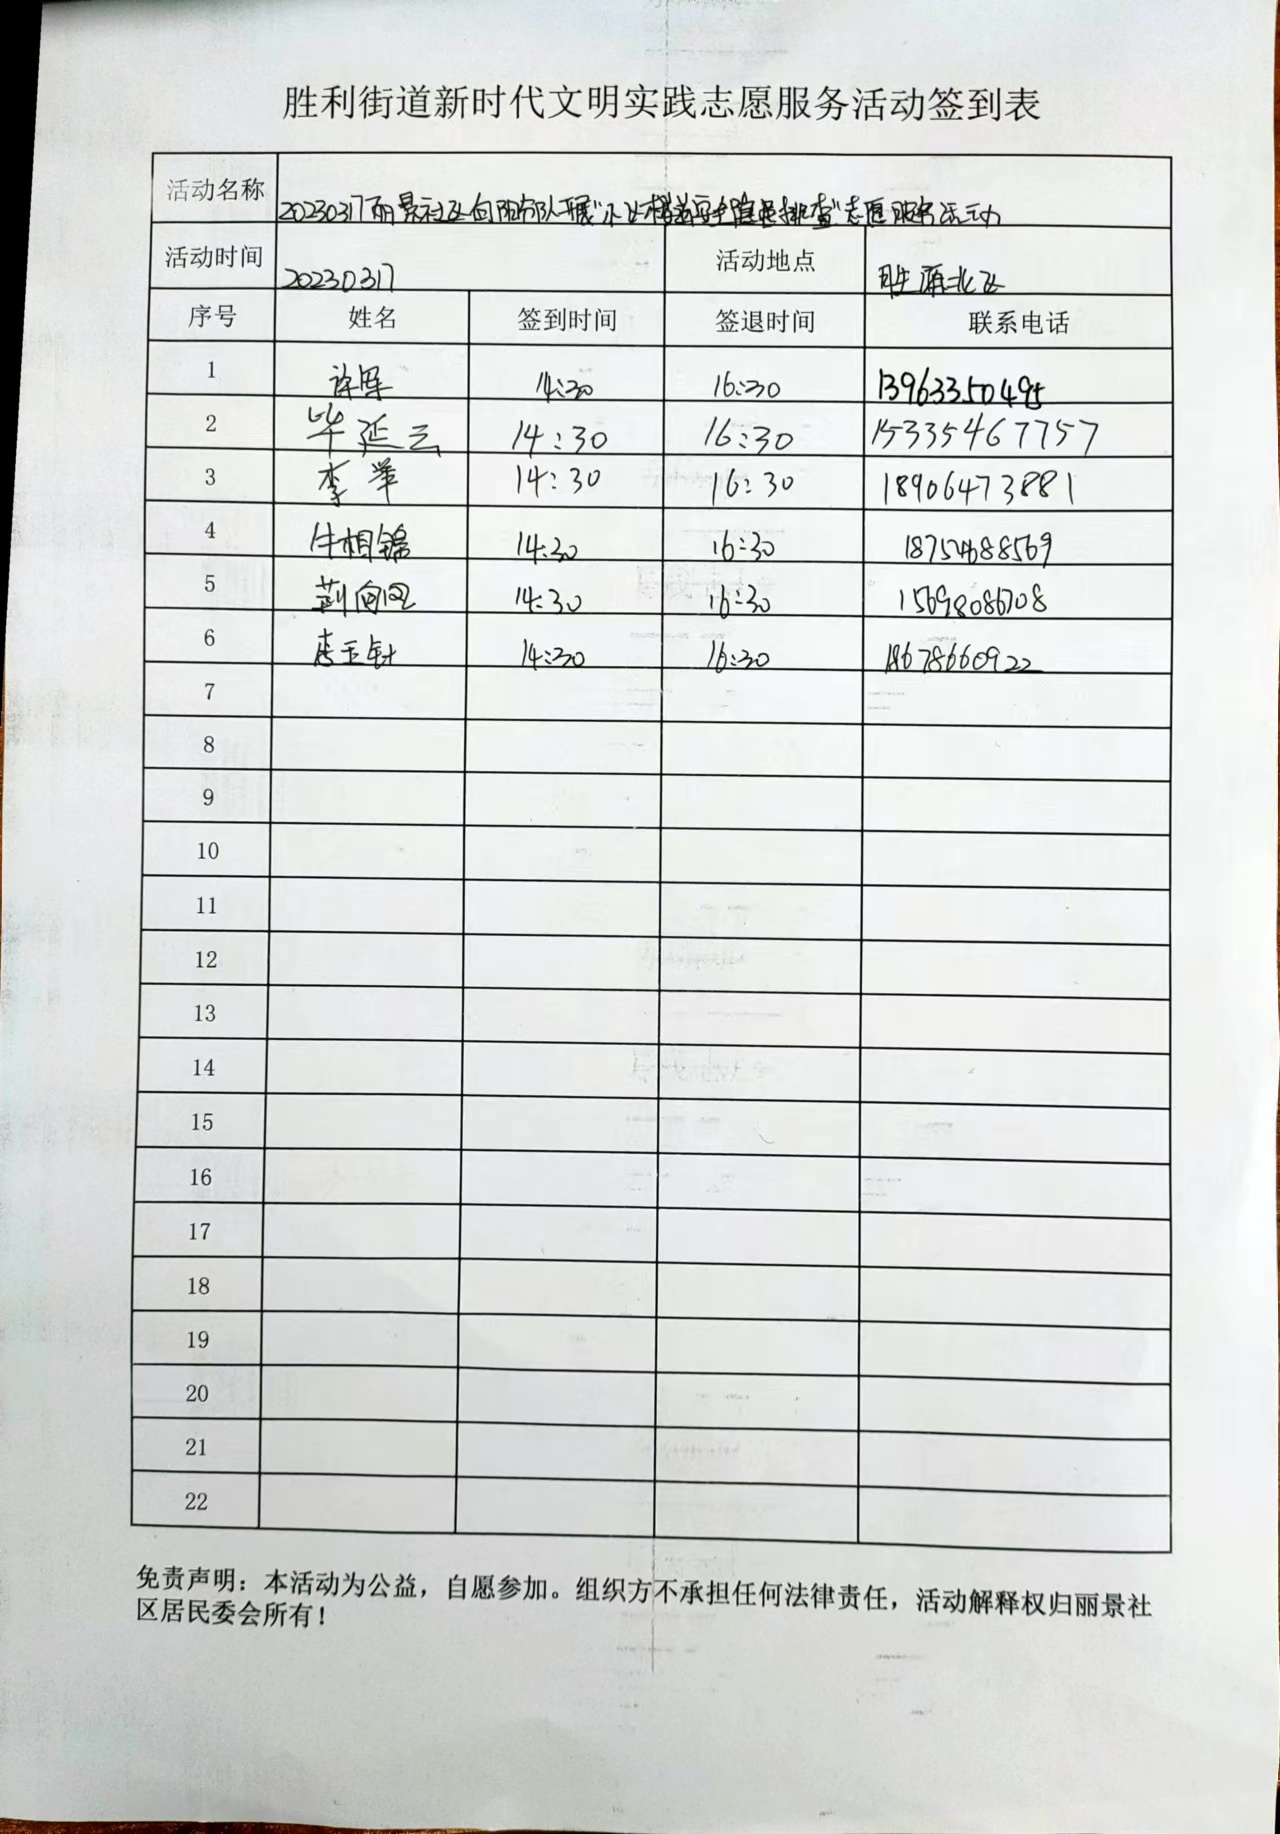 胜利街道新时代文明实践志愿服务活动签到表
活动名称 20230317丽景社区向阳府队开展“小区楼道安全隐患排查”志愿服务活动
活动时间 20230317 活动地点 胜雁北区
序号 姓名 签到时间 签退时间 联系电话
1 许军 14:30 16:30 13963350495
2 毕延云 14:30 16:30 15335467757
3 李举 14:30 16:30 18906473881
4 牛相锦 14:30 16:30 18754688569
5 荆向 14:30 16:30 15698086708
6 李玉针 14:30 16:30 18678660922
7
8
9
10
11
12
13
14
15
16
17
18
19
20
21
22
免责声明：本活动为公益，自愿参加。组织方不承担任何法律责任，活动解释权归丽景社
区居民委会所有！